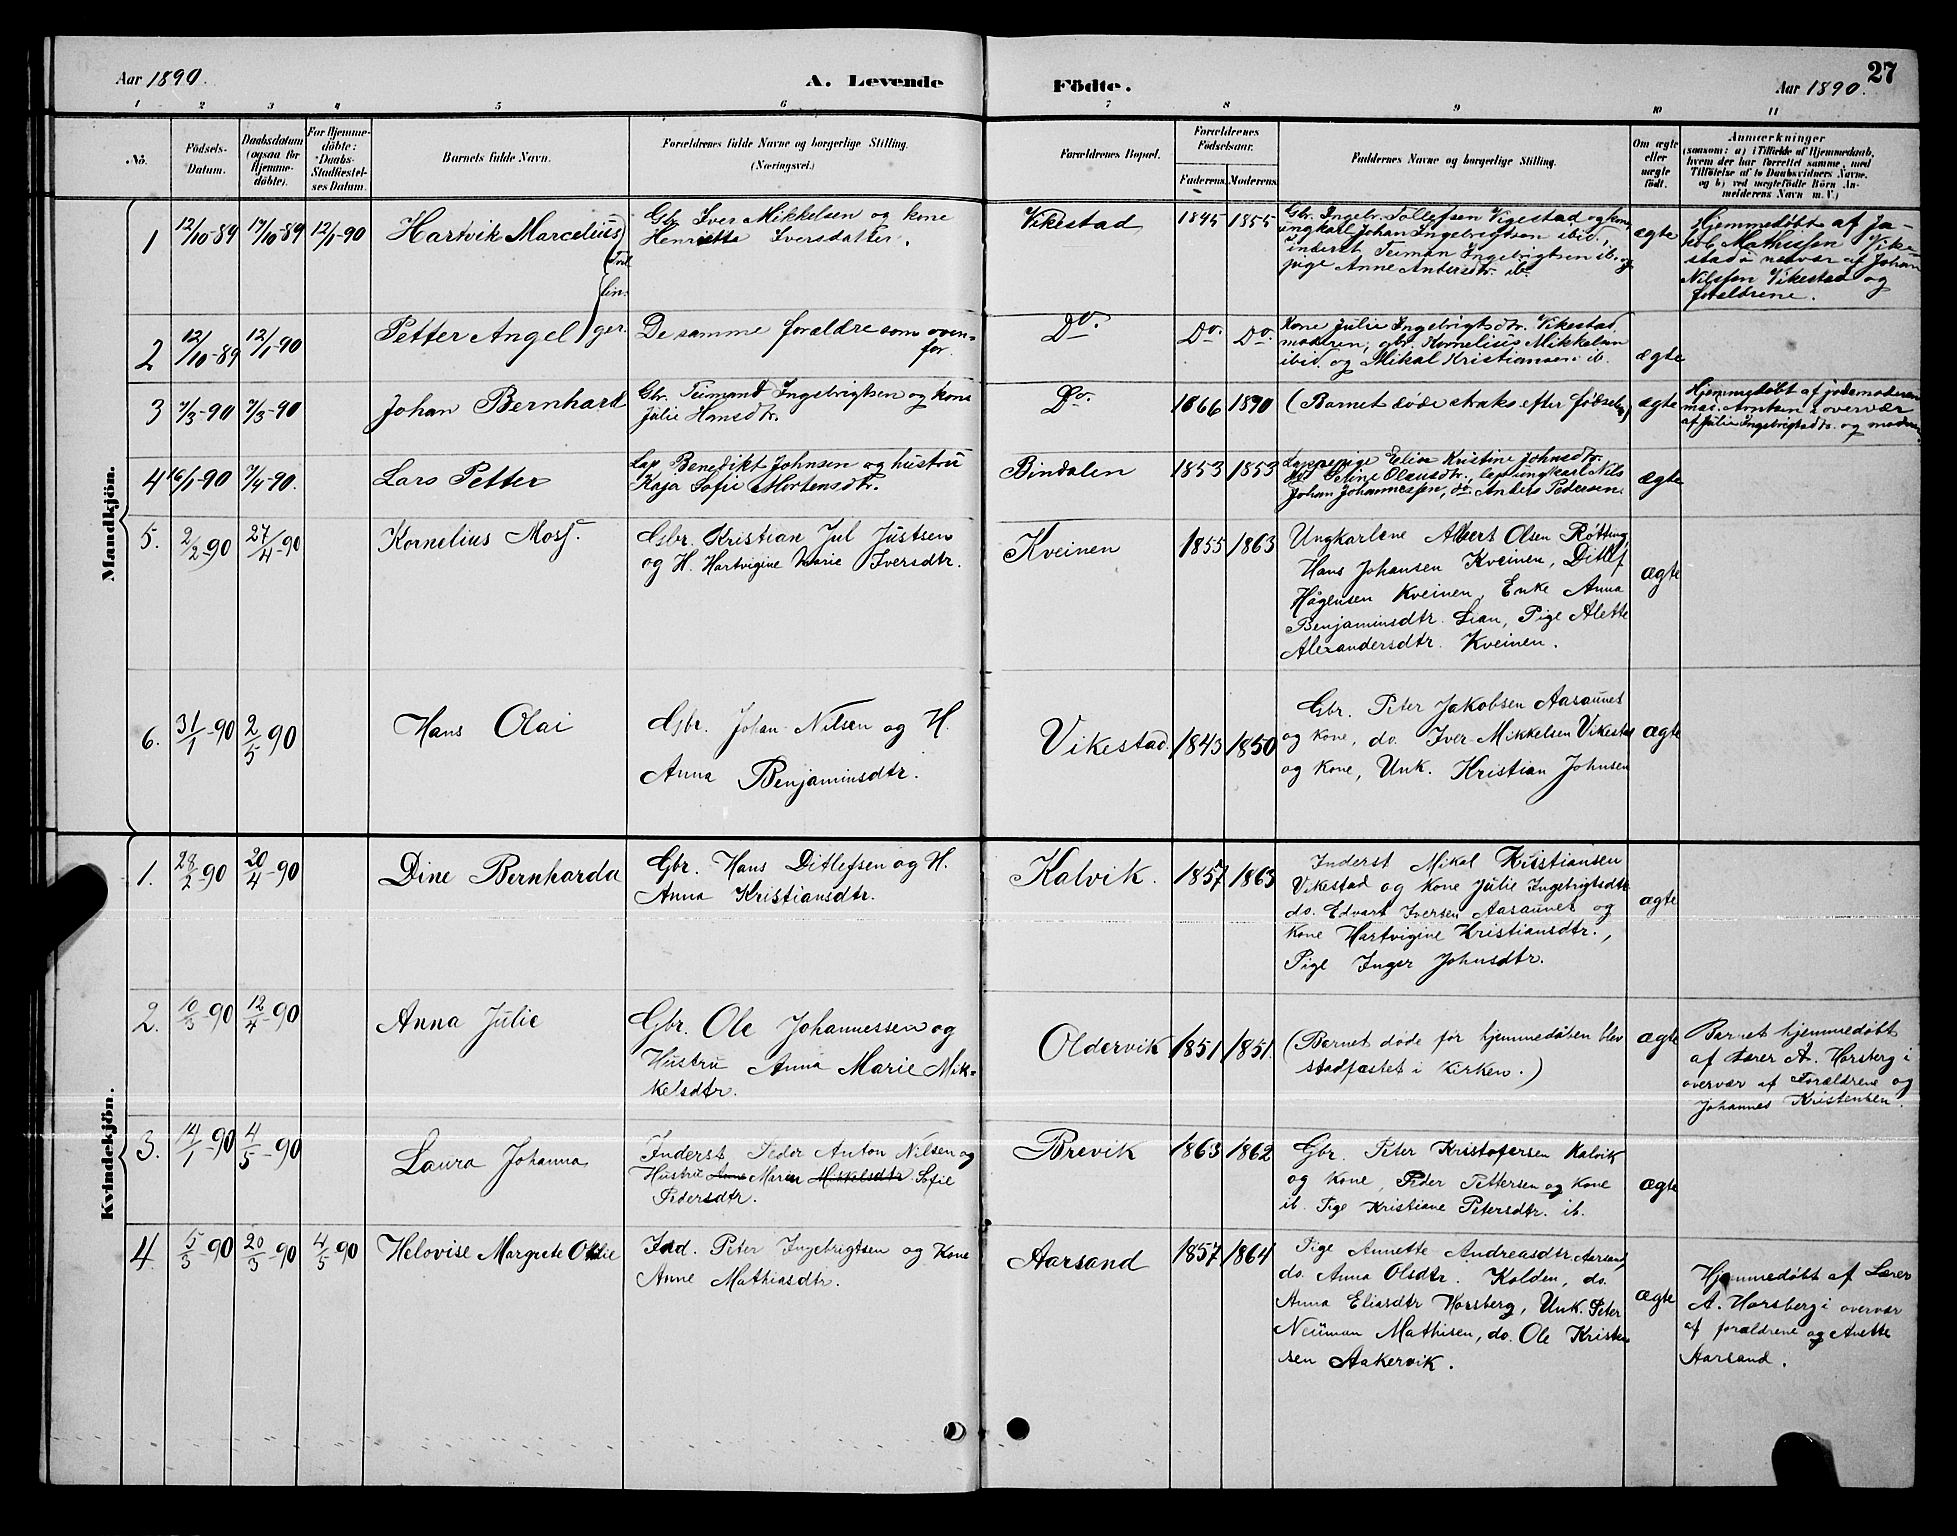 Aar 1890.
A. Levende
Födte.
Aar 1890.
27
1 2 3 4 5 6 7 8 9 10 11
No.
Födsels-
Datum.
Daabsdatum
(ogsaa for
Hjemme-
döbte).
For Hjemme-
döbte:
Daabs-
Stadfæstel-
ses Datum.
Barnets fulde Navn.
Forældrenes fulde Navne og borgerlige Stilling.
(Næringsvei.)
Forældrenes Bopæl.
Forældrenes
Födselsaar.
Faderens. Moderens.
Faddernes Navne og borgerlige Stilling.
Om ægte
eller
uægte
födt.
Anmærkninger
(saasom: a) i Tilfælde af Hjemmedaab,
hvem der har forrettet samme, med
Tilföielse af to Daabsvidners Navne.
og b) ved uægtefödte Börn An-
melderens Navn m. V.)
Mandkjön.
1 12/10-89 17/10-89 12/1-90 Hartvik Marcelius
Tvil
lin-
ger.
Gbr. Iver Mikkelsen og kone
Henriette Iversdatter.
Vikestad 1845 1855
Gbr. Ingebr. Tollefsen Vigestad og kone
ungkarl Johan Ingebrigtsen ibid.,
inderst Teiman Ingebrigtsen ib. og
pige Anne Andersdtr. ib.
ægte
Hjemmedøbt af Ja-
kob Mathissen Vike-
stad i nærvær af Johan
Nilssen Vikestad og
forældrene.
2 12/10-89 12/1-90 Petter Angel
De samme forældre som oven-
for.
Do. Do. Do.
Kone Julie Ingebrigtsdtr. Vikestad.
moderen, gbr. Kornelius Mikkelsen
ibid. og Mikal Kristiansen ib.
ægte
3 7/3-90 7/3-90 Johan Bernhard
Gbr. Teimand Ingebrigtsen og kone
Julie Hansdtr.
Do. 1866 1870
(Barnet døde straks efter fødselen)
ægte
Hjemmedøbt af jordemoderen
mad. Arntsen i overvær
af Julie Ingebrigtsdtr. og moderen
4 16/1-90 7/4-90. Lars Petter
Lap Benedikt Johnsen og hustru
Kaja Sofie Mortensdtr.
Bindalen 1853 1853
Lappepige Elen Kristine Johnsdtr.
do Petine Olausdtr., lapungkarl Nils
Johan Johannessen, do Anders Pedersen.
ægte
5. 2/2-90 27/4-90 Kornelius Mosf.
Gbr. Kristian Jul Justsen
og H. Hartvigine Marie Iversdtr.
Kveinen 1855 1863
Ungkarlene Albert Olsen Røtting,
Hans Johansen Kveinen, Ditlef
Hågensen Kveinen, Enke Anna
Benjaminsdtr. Lian, Pige Alette
Alexandersdtr. Kveinen.
ægte
6. 31/1-90 2/5 90 Hans Olai
Gbr. Johan Nilsen og H.
Anna Benjaminsdtr.
Vikestad. 1843 1850
Gbr. Peter Jakobsen Aasaunet
og Kone, do. Iver Mikkelsen Vikestad
og Kone, Unk. Kristian Johnsen
ægte
Kvindekjön.
1. 28/2-90 20/4-90 Dine Bernharda
Gbr. Hans Ditlefsen og H.
Anna Kristiansdtr.
Kalvik. 1857 1863
Inderst Mikal Kristiansen
Vikestad og Kone Julie Ingebrigtsdtr
do. Edvart Iversen Aasaunet og
Kone Hartvigine Kristiansdtr.,
Pige Inger Johnsdtr.
ægte
2. 10/3-90 12/4-90 Anna Julie
Gbr. Ole Johannessen og
Hustru Anna Marie Mik-
kelsdtr.
Oldervik 1851 1851
(Barnet døde før hjemmedåben blev
stadfæstet i Kirken.)
ægte
Barnet hjemmedøbt
af Lærer A. Horsberg i
overvær af Forældrene og
Johannes Kristensen.
3. 14/1-90 4/5-90 Laura Johanna
Inderst Peder Anton Nilsen og
Hustru Anna Maren Mikkelsdtr Sofie
Pedersdtr.
Brevik 1863 1862
Gbr. Peter Kristofersen Kalvik
og Kone, Peder Pettersen og Kone
ib. Pige Kristiane Petersdtr. ib.
ægte
4. 15/3-90 20/3-90 4/5-90 Helovise Margrete Otilie
Ind. Peter Ingebrigtsen og Kone
Anne Mathiasdtr.
Aarsand 1857 1864
Pige Annette Andreasdtr. Aarsand,
do. Anna Olsdtr. Kolden, do.
Anna Eliasdtr Horsberg, Unk. Peter
Neuman Mathisen, do. Ole Kristen
sen Aakervik.
ægte
Hjemmedøbt af Lærer
A. Horsberg i overvær
af forældrene og Anette
Aarsand.